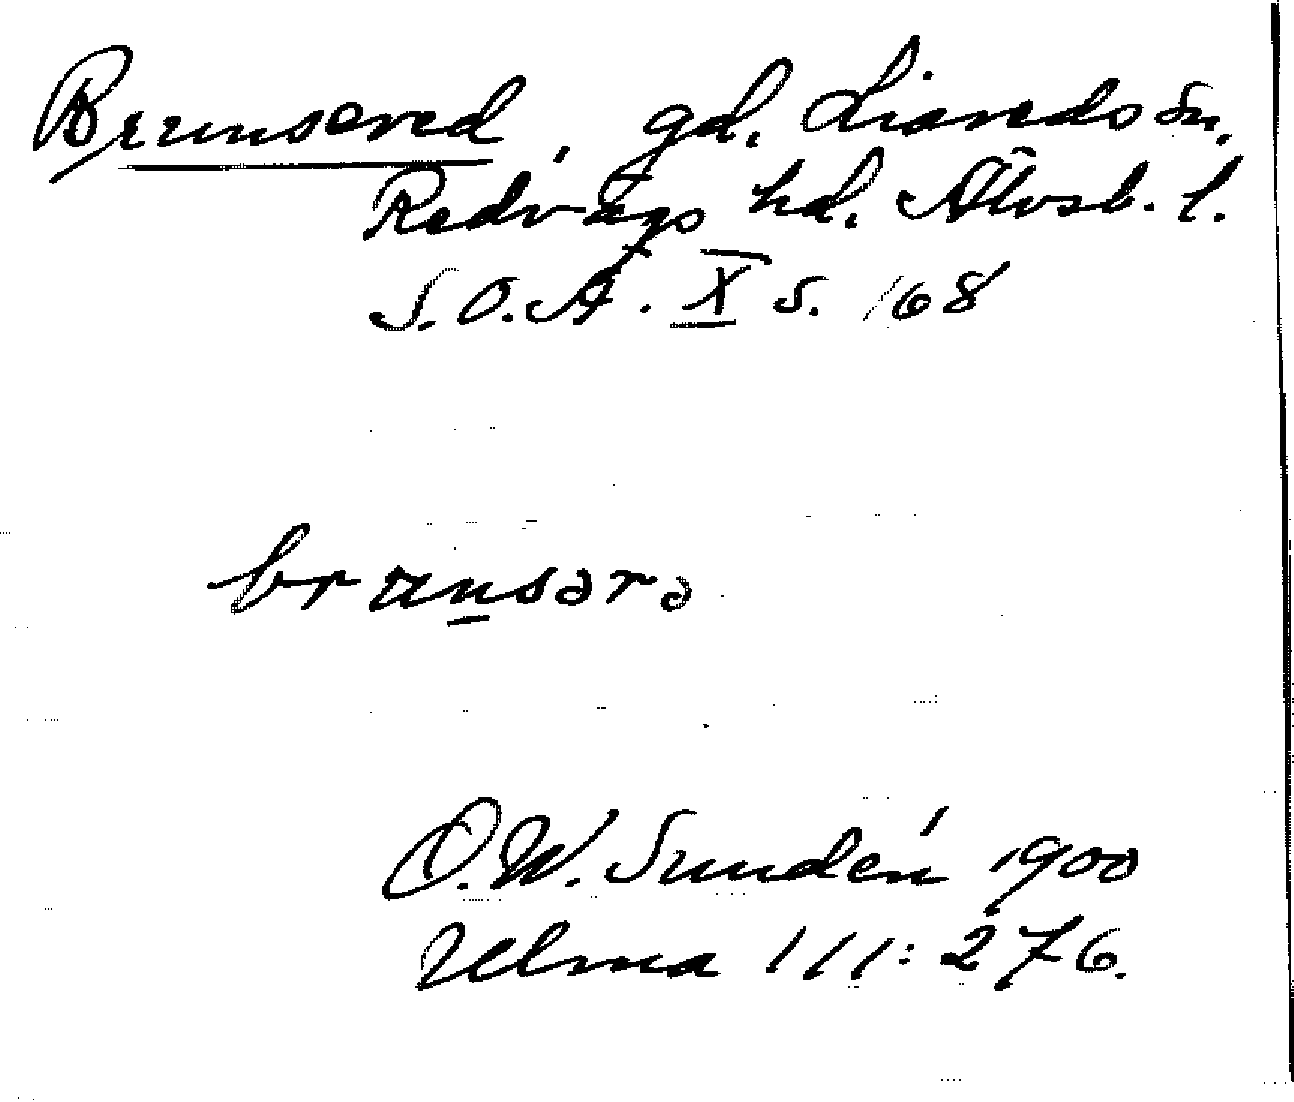 Brunsered, gd. Liareds sn.
Redvägs hd. Älvsb. l.
S.O.Ä. X s. 168
brunsərə
O.W. Sundén 1900
Ulma 111:276.